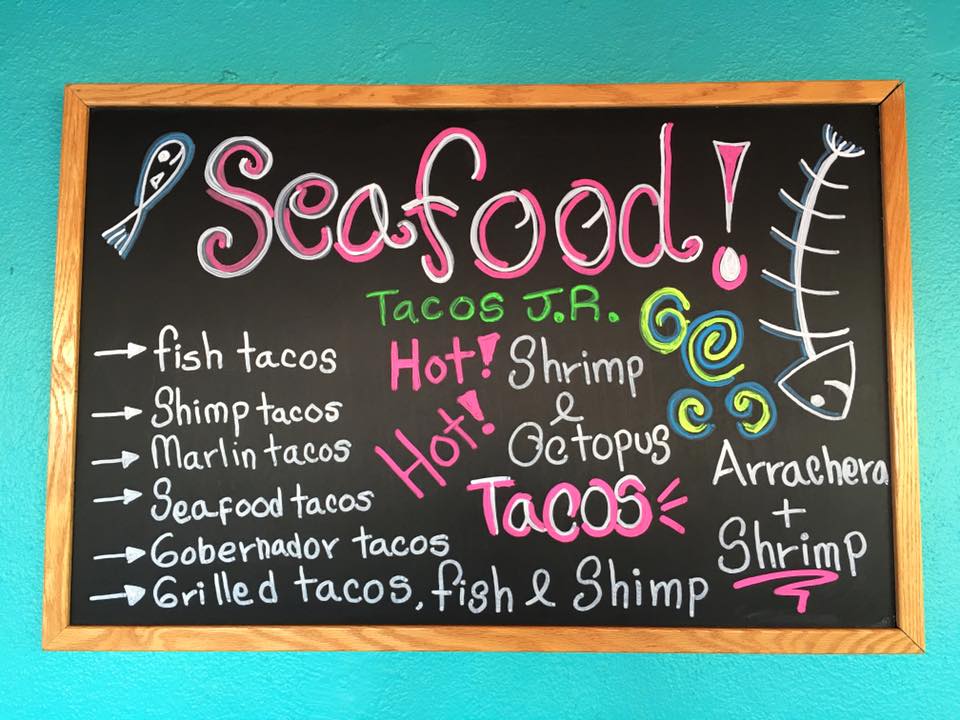 Seafood!
Tacos J.R.
→ fish tacos
→ Shimp tacos
→ Marlin tacos
→ Seafood tacos
→ Gobernador tacos
→ Grilled tacos, fish & Shimp
Hot! Shrimp
&
Hot! Octopus
Tacos
Arrachera
+
Shrimp